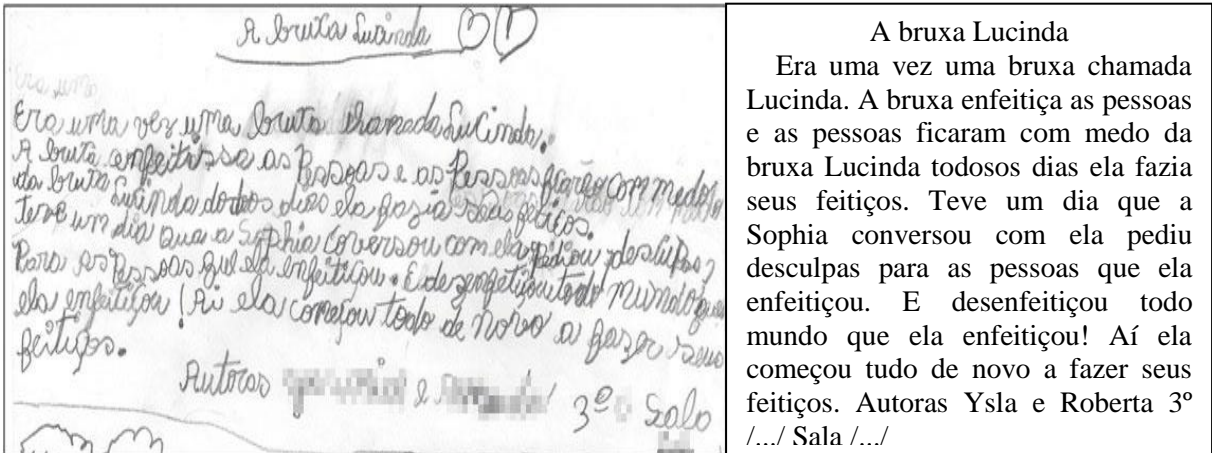 A bruxa Lucinda
Era uma
Era uma vez uma bruta chamada Lucinda.
A bruta enfeitissa as Pessoas e as Pessoas ficarão com medo
da bruta Lucinda dodos dias ela fazia seus feticos.
teve um dia que a Sophia coversou com ela pidiou desculpas
Para as Pessoas que ela enfeitiçou. E desenfetiçou todo mundo que
ela enfeitiçou! Ai ela começou todo de novo a fazer seus
feitiços.
Autoras e 3º Sala
A bruxa Lucinda
Era uma vez uma bruxa chamada
Lucinda. A bruxa enfeitiça as pessoas
e as pessoas ficaram com medo da
bruxa Lucinda todosos dias ela fazia
seus feitiços. Teve um dia que a
Sophia conversou com ela pediu
desculpas para as pessoas que ela
enfeitiçou. E desenfeitiçou todo
mundo que ela enfeitiçou! Aí ela
começou tudo de novo a fazer seus
feitiços. Autoras Ysla e Roberta 3º
/.../ Sala /.../